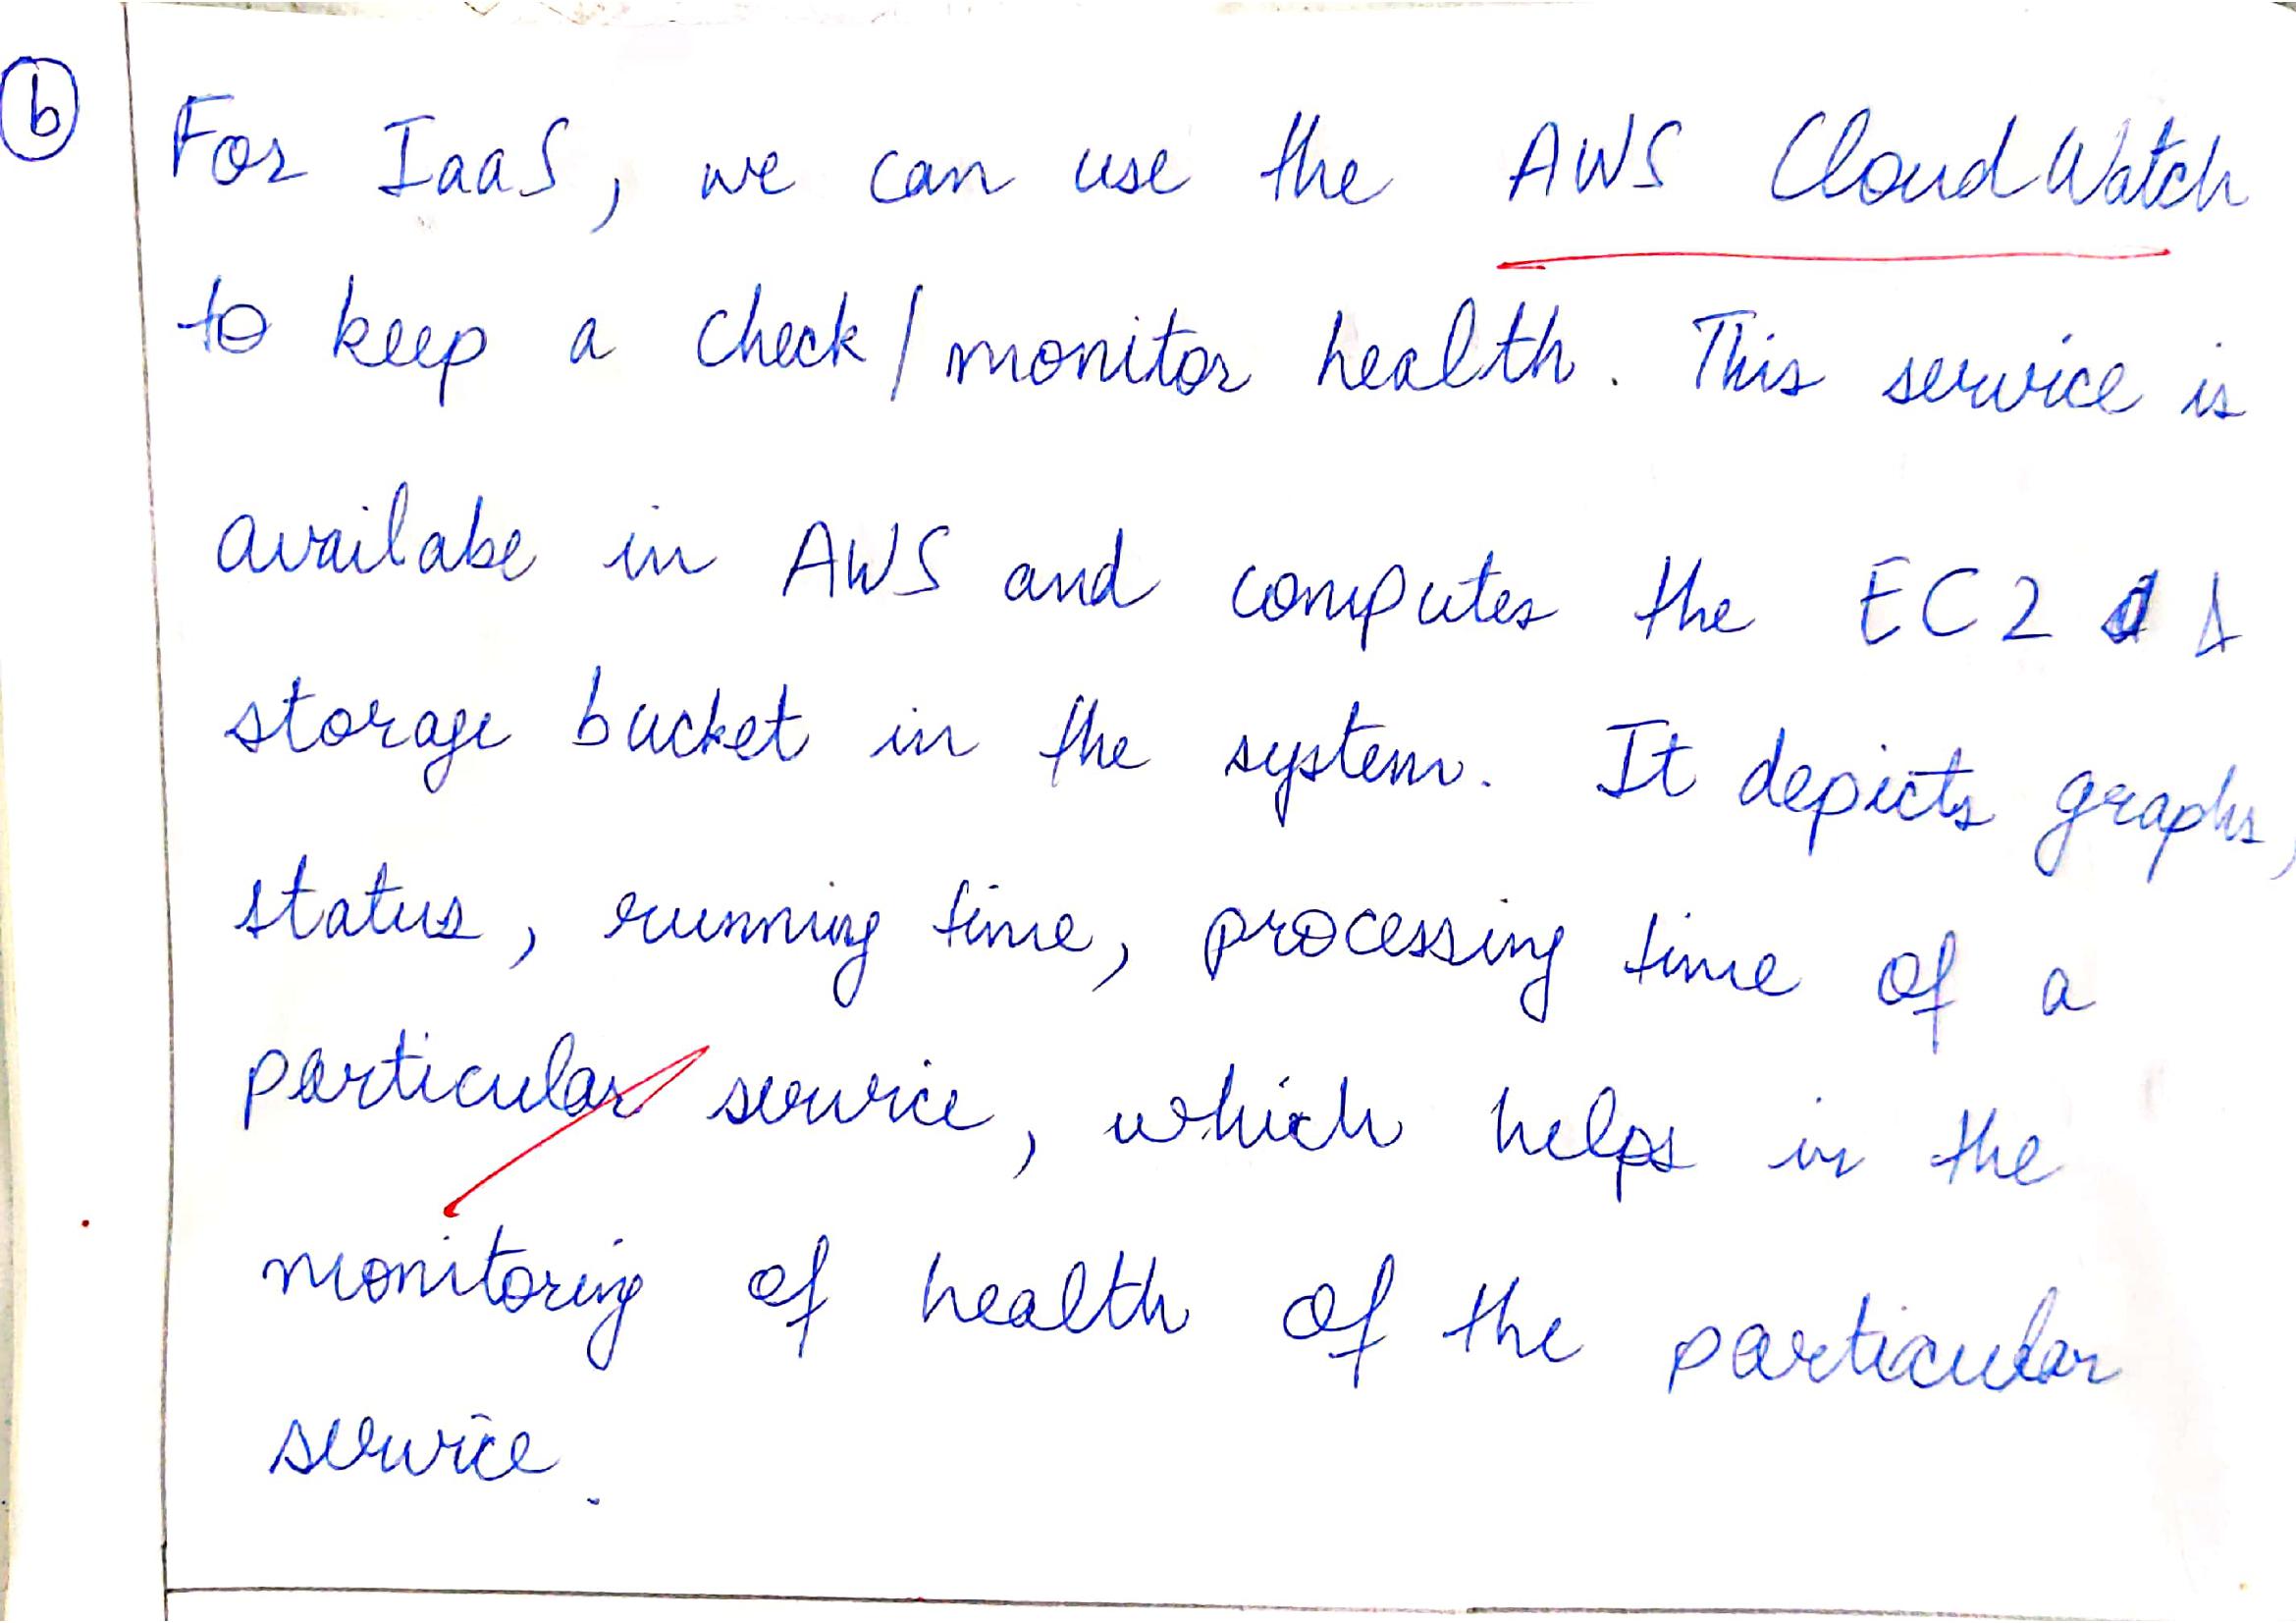 b
For IaaS, we can use the AWS CloudWatch
to keep a check/monitor health. This service is
availabe in AWS and computes the EC2 &
storage bucket in the system. It depicts graphs,
status, running time, processing time of a
particular service, which helps in the
monitoring of health of the particular
service.